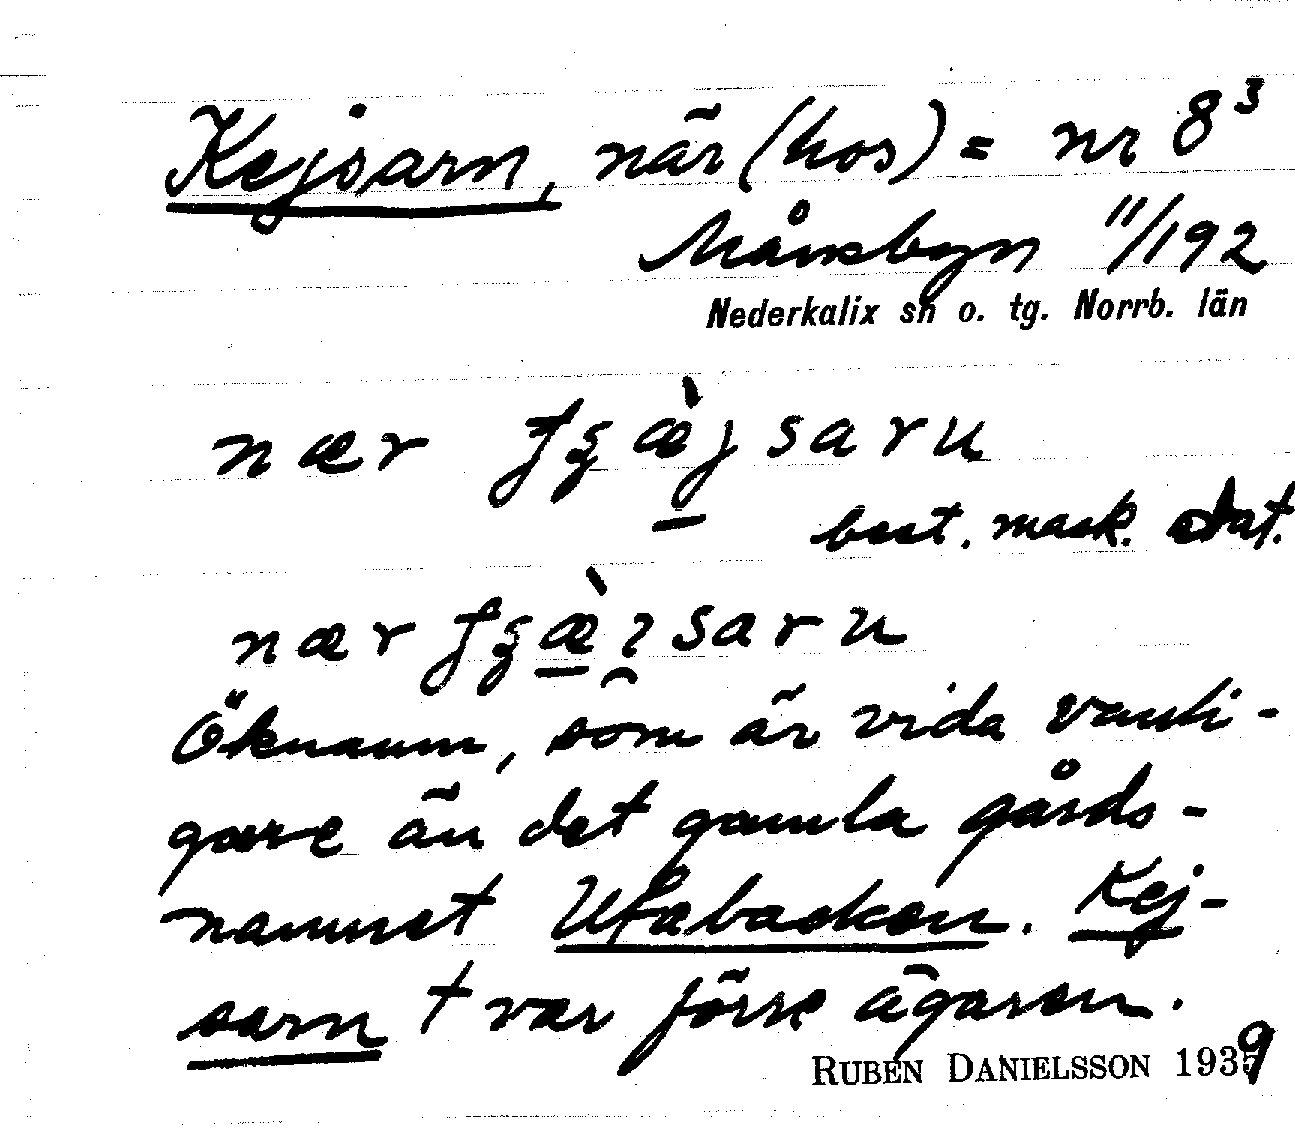 Kejsarn, när (hos) = nr 8³
Månsbyn 11/192
Nederkalix sn o. tg. Norrb. län
nær
best. mask. dat.
nær
Öknamn, som är vida vanli-
gare än det gamla gårds-
namnet Utabacken. Kej-
sarn † var förre ägaren.
RUBEN DANIELSSON 1939